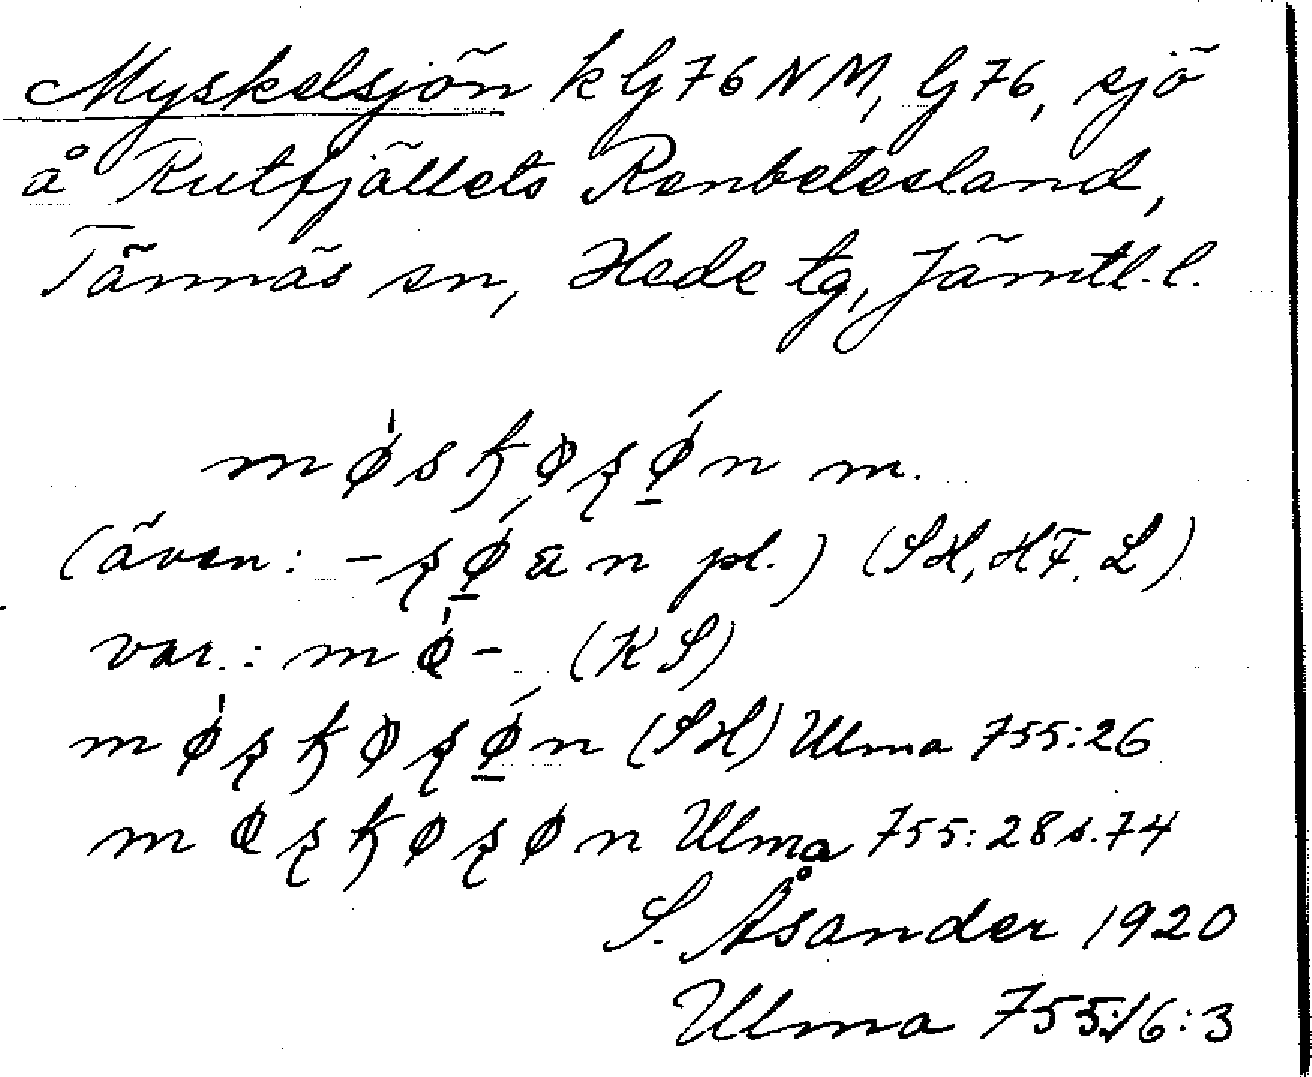 Myskelsjön k G 76 NM, G 76, sjö
å Rutfjällets Renbetesland,
Tännäs sn, Hede tg, Jämtl. l.
m.
(även: - pl.) (SH, HF, L)
var.: m - (KS)
(SH) Ulma 755:26
Ulma 755:28 s. 74
S. Åsander 1920
Ulma 755:16:3